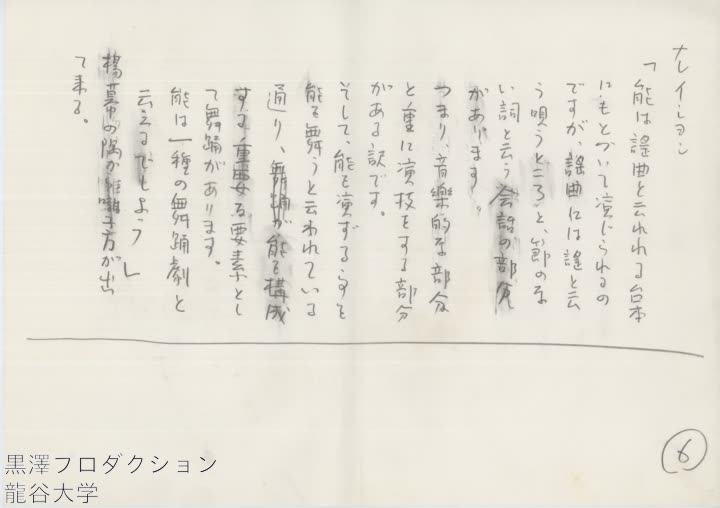 ナレイション
「能は謡曲と云われる台本
にもとづいて演じられるの
ですが、謡曲には謡と云
う唄うところと、節のな
い詞と云う会話の部分
があります。
つまり、音楽的な部分
と重に演技をする部分
がある訳です。
そして、能を演ずる事を
能を舞うと云われている
通り、舞踊が能を構成
する重要な要素とし
て舞踊があります。
能は一種の舞踊劇と
云えるでしょう」
揚幕の隅から囃子方が出
て来る。
6
黒澤プロダクション
龍谷大学